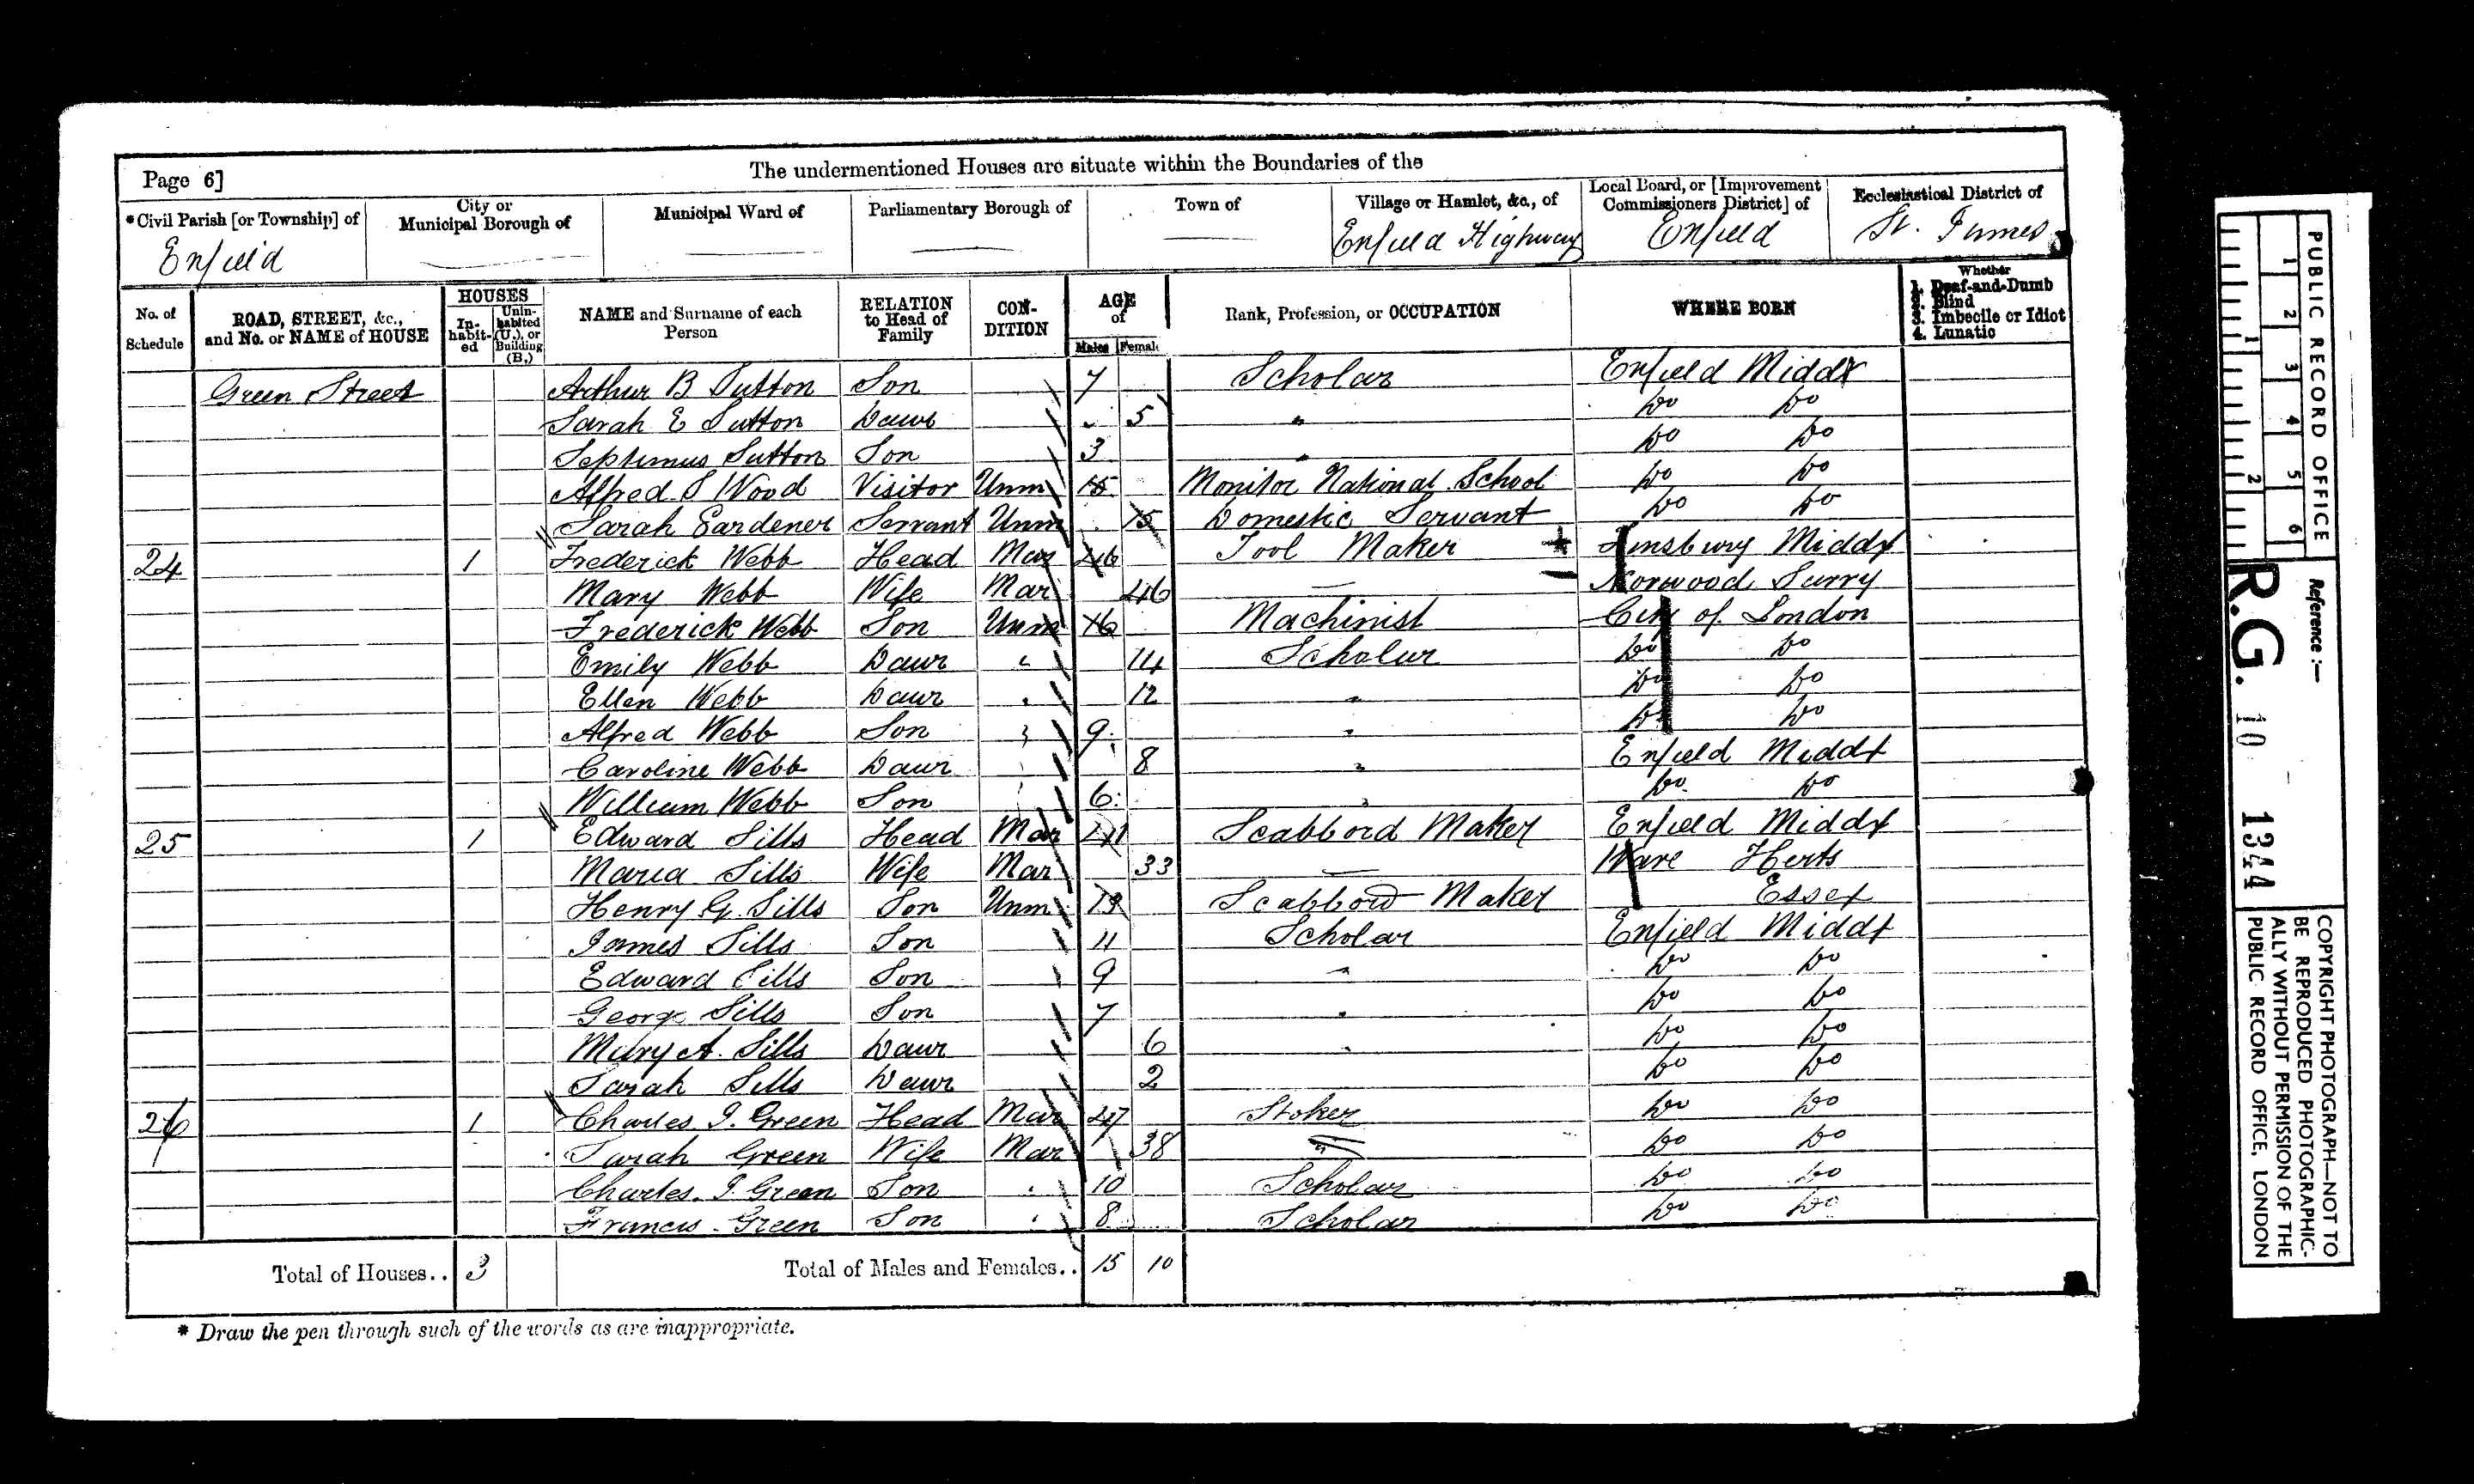 Page 6]
The undermentioned Houses are situate within the Boundaries of the
*Civil Parish [or Township] of
Enfield
City or Municipal Borough of
Municipal Ward of
Parliamentary Borough of
Town of
Village or Hamlet, &c., of
Enfield Highway
Local Board, or [Improvement Commissioners District] of
Enfield
Ecclesiastical District of
St. James
No. of Schedule
ROAD, STREET, &c., and No. or NAME of HOUSE
HOUSES
In-habit-ed
Unin-habited (U.), or Building (B.)
NAME and Surname of each Person
RELATION to Head of Family
CON-DITION
AGE of
Males
Femal
Rank, Profession, or OCCUPATION
WHERE BORN
Whether
1. Deaf-and-Dumb
2. Blind
3. Imbecile or Idiot
4. Lunatic
Green Street Arthur B Sutton Son 7 Scholar Enfield Middx
Sarah E Sutton Daur 5 " Do Do
Septimus Sutton Son 3 " Do Do
Alfred S Wood Visitor Unm 15 Monitor National School Do Do
Sarah Gardener Servant Unm 15 Domestic Servant Do Do
24 1 Frederick Webb Head Mar 46 Tool Maker Finsbury Middx
Mary Webb Wife Mar 46 — Norwood Surry
Frederick Webb Son Unm 16 Machinist City of London
Emily Webb Daur " 14 Scholar Do Do
Ellen Webb Daur " 12 " Do Do
Alfred Webb Son " 9 " Do Do
Caroline Webb Daur 8 " Enfield Middx
William Webb Son 6 " Do Do
25 1 Edward Sills Head Mar 41 Scabbord Maker Enfield Middx
Maria Sills Wife Mar 33 — Ware Herts
Henry G. Sills Son Unm Scabbord Maker Essex
James Sills Son 11 Scholar Enfield Middx
Edward Sills Son 9 " Do Do
George Sills Son 7 " Do Do
Mary A. Sills Daur 6 " Do Do
Sarah Sills Daur 2 Do Do
26 1 Charles J. Green Head Mar 47 Stoker Do Do
Sarah Green Wife Mar 38 Do Do
Charles J. Green Son 10 Scholar Do Do
Francis Green Son 8 Scholar Do Do
Total of Houses.. 3
Total of Males and Females.. 15 10
* Draw the pen through such of the words as are inappropriate.
PUBLIC RECORD OFFICE
1 2 3 4 5 6
1 2
Reference:—
R.G. 10 1344
COPYRIGHT PHOTOGRAPH—NOT TO
BE REPRODUCED PHOTOGRAPHIC-
ALLY WITHOUT PERMISSION OF THE
PUBLIC RECORD OFFICE, LONDON